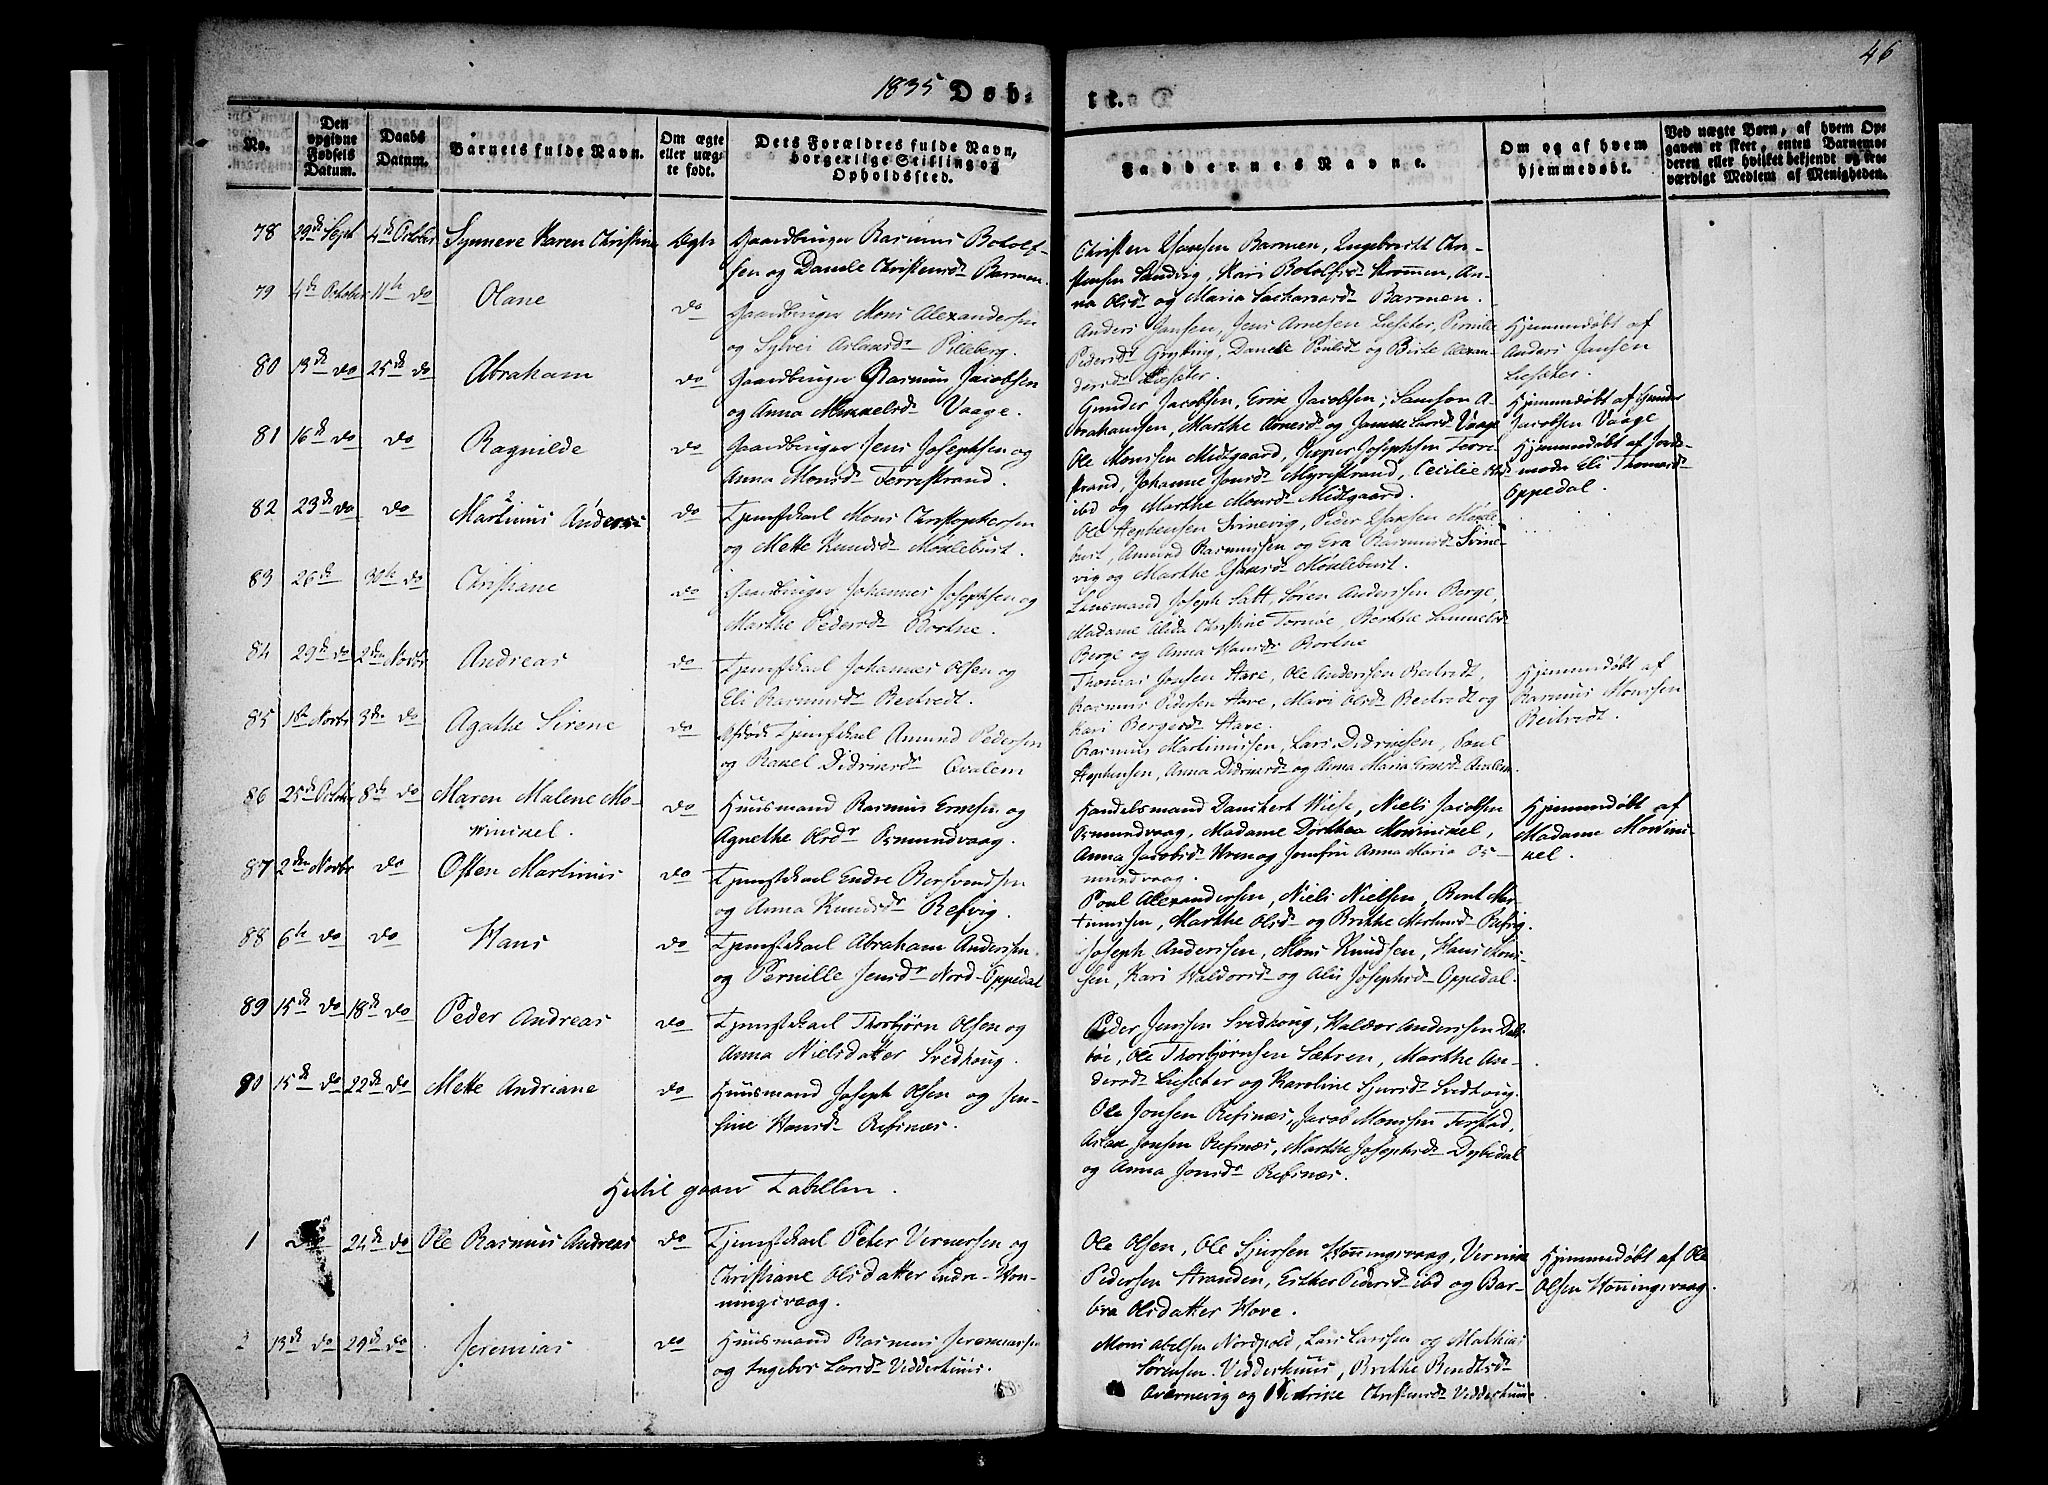 46
1835 Døb-
te.
No.
Den opgivne Fødsels Datum.
Daabs Datum.
Barnets fulde Navn.
Om ægte eller uægte født.
Dets Forældres fulde Navn, borgerlige Stilling og Opholdssted.
Faddernes Navne.
Om og af hvem hjemmedøbt.
Ved uægte Børn, af hvem Opgaven er skeet, enten Barnemoderen eller hvilket bekjendt og troværdigt Medlem af Menigheden.
78 29de Sept 4de October Synneve Karen Christine Ægte Gaardbruger Rasmus Botolf-
sen og Danele Christensdr Barmen.
Christen Hansen Barmen, Ingebrict Chri-
stensen Sandvig, Kari Botolfsdr Strømmen, An-
na Olsdr og Maria Sachariasdr Barmen.
79 4de October 11te do Olane do Gaardbruger Mons Alexandersen
og Sylvei Aslaksdr Pilleberg.
Anders Jansen, Jens Arnesen Liseter, Pernille
Pedersdr Grytting, Danele Poulsdr og Birte Alexan-
dersdr Liseter.
Hjemmedøbt af
Anders Jansen
Lisæter.
80 13de do 25de do Abraham do Gaardbruger Rasmus Jacobsen
og Anna Mikkelsdr Vaage.
Gunder Jacobsen, Erik Jacobsen, Samson A-
brahamsen, Marthe Arnesdr og Janne Larsdr Vaage
Hjemmedøbt af Gunder
Jacobsen Vaage
81 16de do do Ragnilde do Gaardbruger Jens Josephsen og
Anna Monsdr Ferrestrand.
Ole Monssen Midtgaard, Jesper Josephsen Ferre-
strand, Johanne Jonsdr Myrestrand, Cecilie Olsdr
ibd og Marthe Monsdr Midtgaard.
Hjemmedøbt af Jorde-
moder Eli Thomasdr
Oppedal.
82 23de do do Martinus Anders do Tjenstkarl Mons Christophersen
og Mette Knudsdr Mökleburst.
Ole Stephensen Svinevig, Peder Hansen Mökle-
burst, Amund Rasmussen og Eva Rasmusdr Svine-
vig og Marthe Hansdr Mökleburst.
83 26de 30te do Christiane do Gaardbruger Johannes Josephsen og
Marthe Pedersdr Bortne.
Lensmand Joseph Satt, Søren Anderssen Berge,
Madame Alida Christine Tornøe, Berthe Samuelsdr
Berge og Anna Hansdr Bortne
84 29de do 2den Novbr Andreas do Tjenstkarl Johannes Olsen og
Eli Rasmusdr Beitvedt.
Thomas Jonsen Stave, Ole Anderssen Beitvedt,
Rasmus Pedersen Stave, Mari Olsdr Beitvedt og
Kari Bergesdr Stave.
Hjemmedøbt af
Rasmus Monssen
Beitvedt.
85 1ste Novbr 3die do Agathe Sirene do Tjenstkarl Amund Pedersen
og Rakel Didriksdr Qvalem
Rasmus Martinussen, Lars Didriksen, Poul
Stephensen, Anna Didriksdr og Anna Maria Ernsdr Qvalem.
86 25de October 8de do Maren Malene Mo-
winckel. do Huusmand Rasmus Ernssen og
Agnethe Olsdr Osmundvaag.
Handelsmand Danckert Wiese, Niels Jacobsen
Osmundvaag, Madame Dorthea Mowinckel,
Anna Jacobsdr og Jomfru Anna Maria Os-
mundvaag.
Hjemmedøbt af
Madame Mowinc-
kel.
87 2den Novbr do Østen Martinus do Tjenstkarl Endre Bersvendsen
og Anna Knudsdr Refvig.
Poul Alexandersen, Niels Nielsen, Bent Mar-
tinussen, Marthe Olsdr og Brithe Martinusdr Refvig.
88 6te do do Hans do Tjenstkarl Abraham Anderssen
og Pernille Jensdr Nord-Oppedal
Joseph Anderssen, Mons Knudsen, Hans Mons-
sen, Kari Haldorsdr og Alis Josephsdr Oppedal.
89 15de do 18de do Peder Andreas do Tjenstkarl Thorbjörn Olsen og
Anna Nielsdatter Svedhoug.
Peder Jenssen Svedhoug, Haldor Anderssen Dals-
bøe, Ole Thorbjørnsen Sætren, Marthe An-
dersdr Lisæter og Karoline Sjursdr Svedhoug.
90 15de do 22de do Mette Andriane do Huusmand Joseph Olsen og Jen-
sine Hansdr Refsnæs.
Ole Jonsen Refsnæs, Jacob Monssen Torstad,
Aslak Jonsen Refsnæs, Marthe Josephsdr Dybedal
og Anna Jonsdr Refsnæs.
Hertil gaaer Tabellen.
1 do 24de do Ole Rasmus Andreas do Tjenstkarl Peter Vernersen og
Christiane Olsdatter Indre-Hon-
ningsvaag.
Ole Olsen, Ole Sjursen Honningsvaag, Vernik
Pedersen Stranden, Esther Pedersdr ibd og Bar-
bra Olsdatter Hove.
Hjemmedøbt af Ole
Olsen Honningsvaag.
2 13de do 29de do Jeremias do Huusmand Rasmus Jeremiassen
og Ingeber Larsdr Vedderhuus.
Mons Abelsen Nordpold, Lars Larssen og Mathias
Sørensen Vedderhuus, Brithe Bendtsdr
Aarnevig og Hedrike Christensdr Vedderhuus.